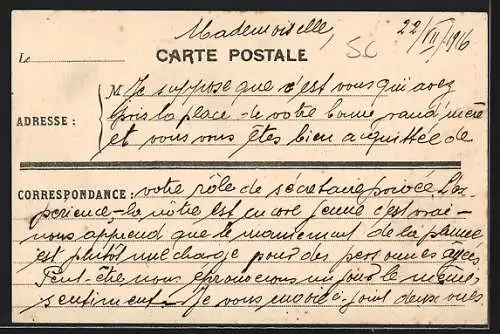 Mademoiselle, 22/VII/1916
S.C
Le
CARTE POSTALE
M Je suppose que c'est vous qui avez
pris la place de votre bonne grand'mère
ADRESSE :
et vous vous êtes bien acquittée de
CORRESPONDANCE : votre rôle de sécrétaire privée. L'ex-
périence – la nôtre est encore jeune c'est vrai –
nous apprend que le maniement de la plume
est plutôt une charge pour des personnes âgées
Peut-être nous éprouverons un jour le même
sentiment – Je vous envoie ci-joint deux vues